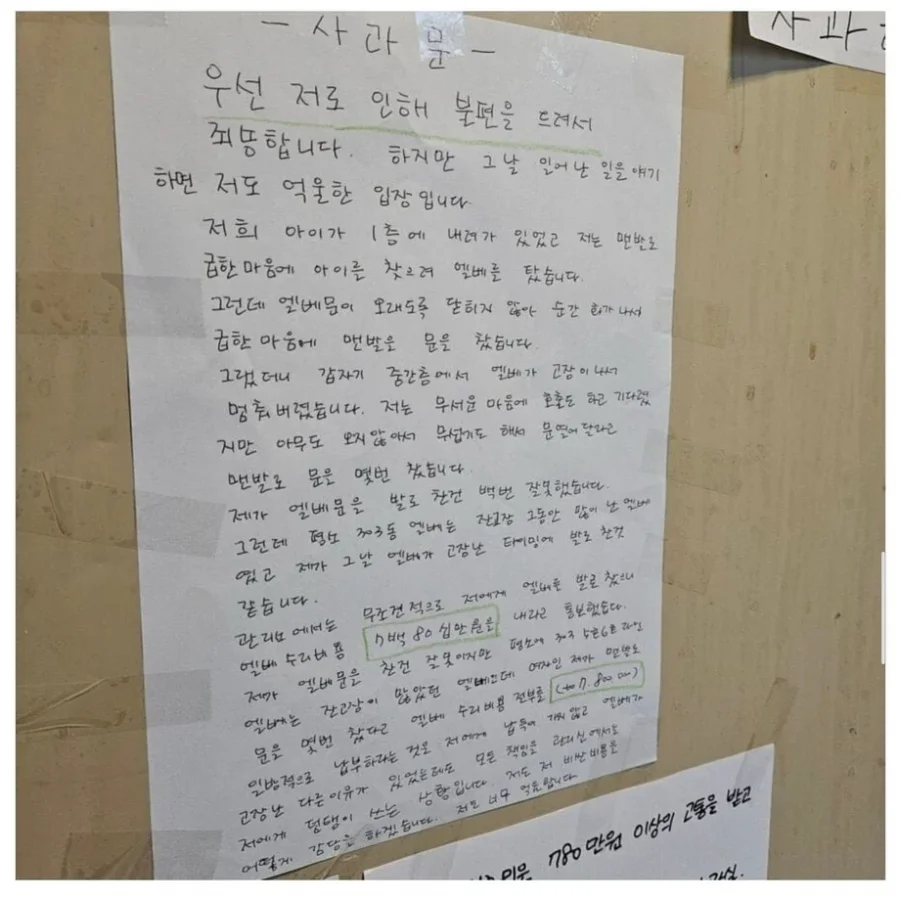 - 사 과 문 -
사 과
우선 저로 인해 불편을 드려서
죄뚱합니다. 하지만 그날 일어난 일을 얘기
하면 저도 억울한 입장입니다.
저희 아이가 1층에 내려가 있었고 저는 맨발로
급한마음에 아이를 찾으려 엘베를 탔습니다.
그런데 엘베문이 오래도록 닫히지 않아 순간 화가나서
급한마음에 맨발로 문을 찼습니다.
그랬더니 갑자기 중간층에서 엘베가 고장이나서
멈춰버렸습니다. 저는 무서운 마음에 호출도 하고 기다렸
지만 아무도 오지않아서 무섭기도 해서 문열어달라고
맨발로 문을 몇번 찼습니다.
제가 엘베문을 발로 찬건 백번 잘못했습니다.
그런데 평소 303동 엘베는 잔고장 그동안 많이 난 엘베
였고 제가 그날 엘베가 고장난 타이밍에 발로 찬것
같습니다.
관리소에서는 무조건적으로 저에게 엘베를 발로 찼으니
엘베 수리비용 7백 80 십만원을 내라고 통보했습니다.
제가 엘베문을 찬건 잘못이지만 평소에 303 5호6호라인
엘베는 잔고장이 많았던 엘베인데 여자인 제가 맨발로
문을 몇번 찼다고 엘베 수리비용 전부를 (7.800.000)
일방적으로 납부하라는 것은 저에게 납득이 가지않고 엘베가
고장난 다른이유가 있었는데도 모든 책임을 관리실에서는
저에게 덤탱이 쓰는 상황입니다. 저도 저 비싼비용을
어떻게 감당을 하겠습니다. 저도 너무 억울합니다.
780만원 이상의 고통을 받고